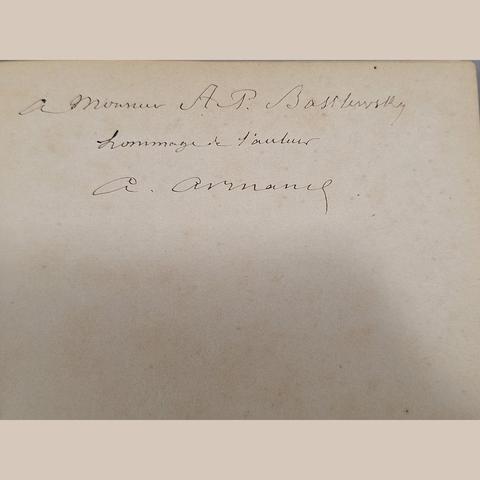 a Monsieur A. P. Basilewsky
hommage de l'auteur
A. Armand